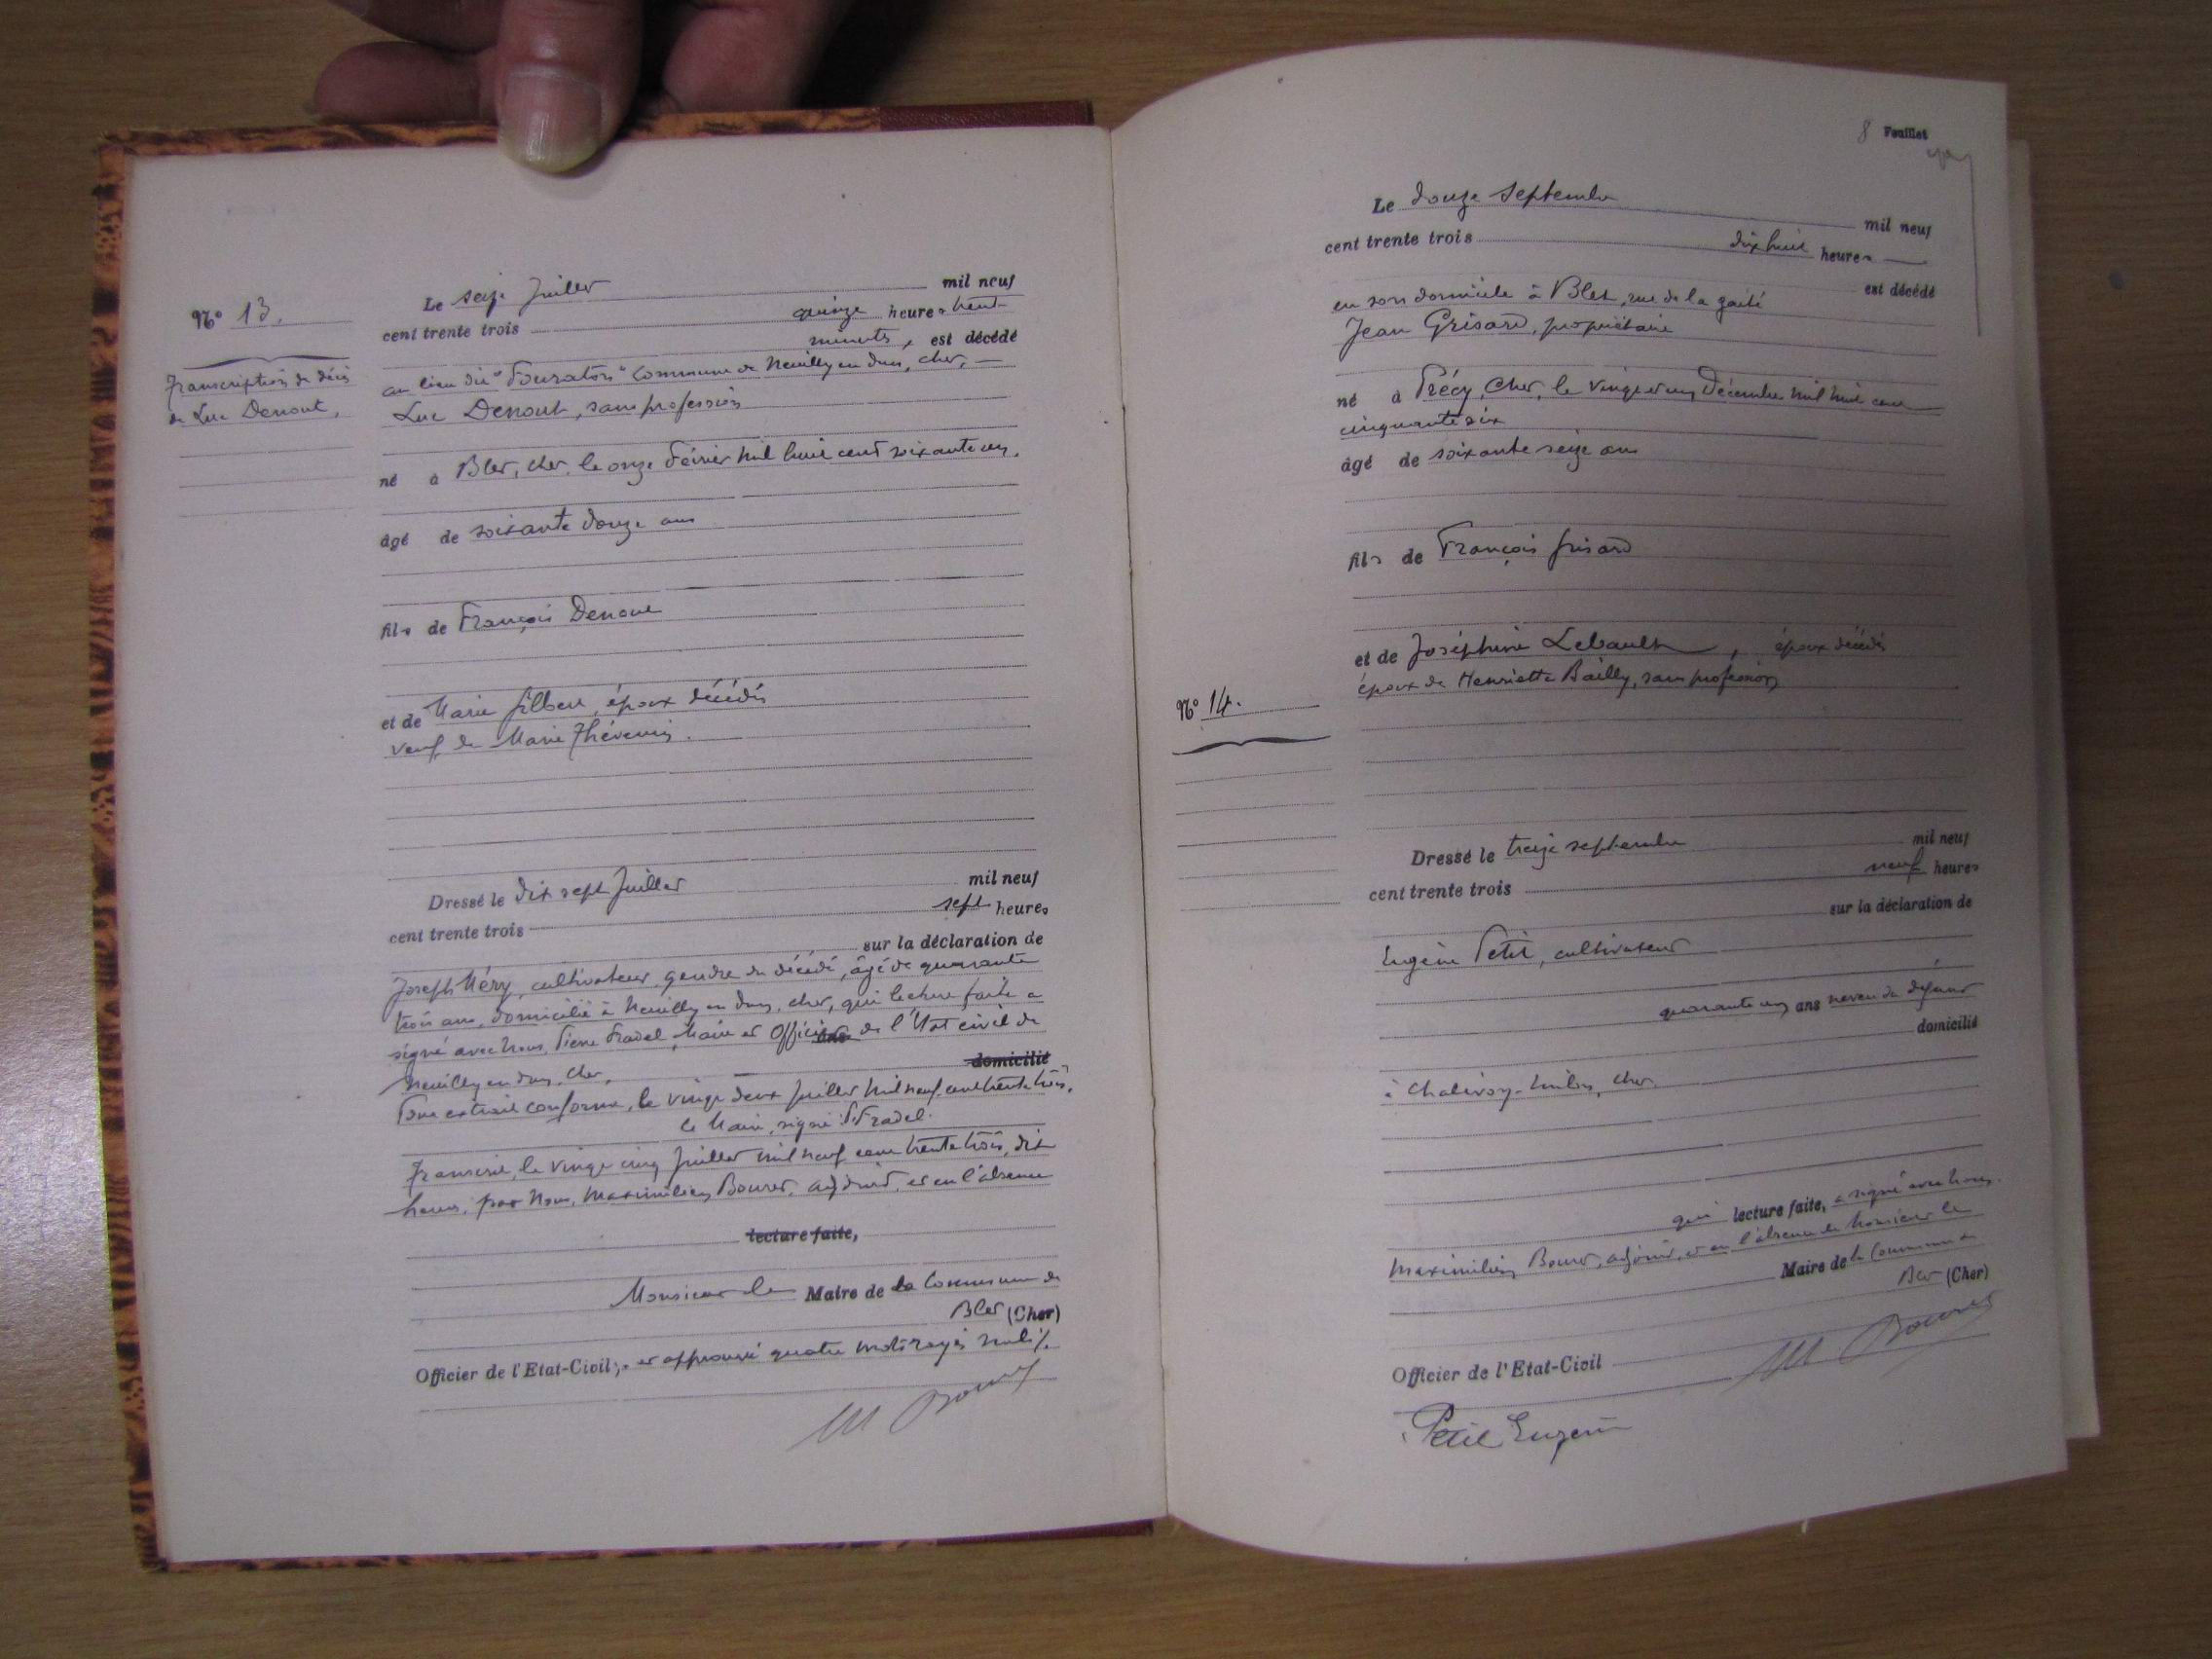 Nº 13.
Transcription de décès
de Luc Denout,
Le seize Juillet mil neuf
cent trente trois quinze heures trente
minutes, est décédé
au lieu dit "Fouratons" Commune de Neuilly en dun, Cher,
Luc Denout, sans profession
né à Blet, Cher, le onze Février mil huit cent soixante un,
âgé de soixante douze ans
fils de François Denout
et de Marie Gilbert, époux décédés
veuf de Marie Thévenin.
Dressé le dix sept Juillet mil neuf
cent trente trois sept heures
sur la déclaration de
Joseph Méry, cultivateur, gendre du décédé, âgé de quarante
trois ans, domicilié à Neuilly en dun, Cher, qui lecture faite a
signé avec Nous, Pierre Fradel, Maire et Officier ans de l'Etat civil de
domicilié
Neuilly en dun, Cher,
Pour extrait conforme, le vingt deux Juillet mil neuf cent trente trois,
le Maire, signé P. Fradel.
Transcrit, le vingt cinq Juillet mil neuf cent trente trois, dix
heures, par Nous, Maximilien Bouret, adjoint, et en l'absence
lecture faite,
Monsieur le Maire de la Commune de
Blet (Cher)
Officier de l'Etat-Civil, et approuvé quatre mots rayés nuls
M Bouret
8 Feuillet
Nº 14.
Le douze Septembre mil neuf
cent trente trois dix huit heures
est décédé
en son domicile à Blet, rue de la gaité
Jean Grisard, propriétaire
né à Précy, Cher, le vingt et un Décembre mil huit cent
cinquante six
âgé de soixante seize ans
fils de François Grisard
et de Joséphine Lebault, époux décédés
époux de Henriette Bailly, sans profession
Dressé le treize septembre mil neuf
cent trente trois neuf heures
sur la déclaration de
Eugène Petit, cultivateur
quarante un ans neveu du défunt
domicilié
à Chalivoy-Milon, Cher.
qui lecture faite, a signé avec Nous,
Maximilien Bouret, adjoint, et en l'absence de Monsieur le
Maire de la Commune de
Blet (Cher)
Officier de l'Etat-Civil
M Bouret
Petit Eugène